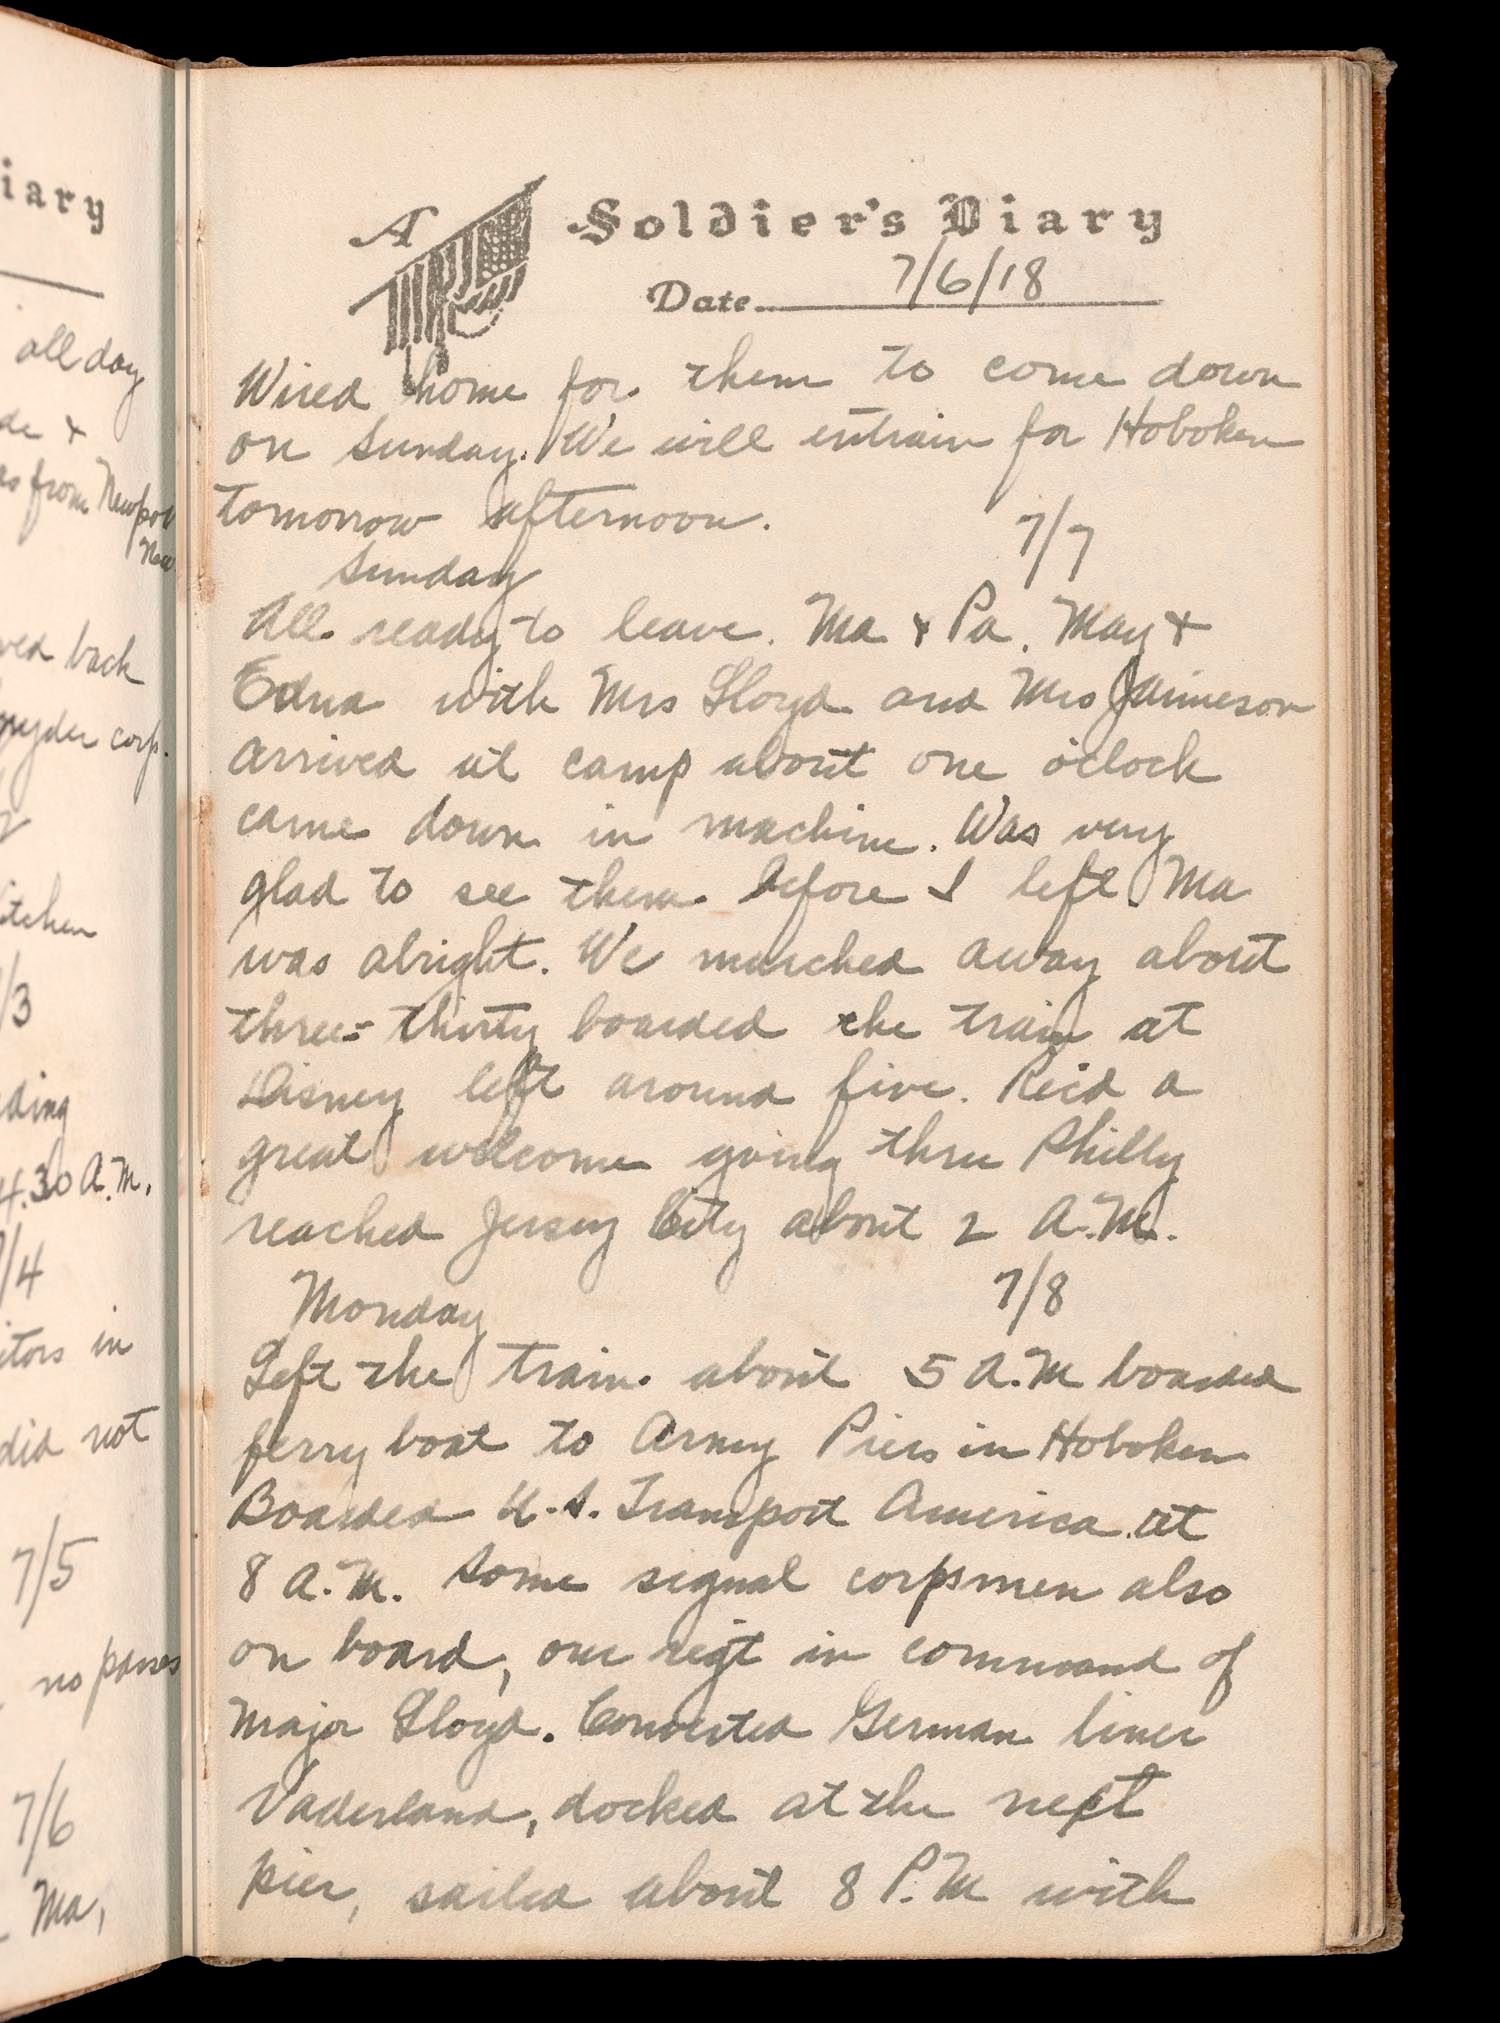 iary
all day
&
as from Newport
New
ved back
snyder corp.
itchen
/3
ding
4.30 A.M.
7/4
itors in
did not
7/5
no passes
7/6
Ma,
A Soldier's Diary
Date 7/6/18
Wired home for them to come down
on Sunday. We will entrain for Hoboken
tomorrow afternoon.
7/7
Sunday
All ready to leave. Ma & Pa. May &
Edna with Mrs Lloyd and Mrs Jaimeson
arrived at camp about one o'clock
came down in machine. Was very
glad to see them before I left. Ma
was alright. We marched away about
three-thirty boarded the train at
Disney left around five. Rec'd a
great welcome going thru Philly
reached Jersey City about 2 A.M.
Monday 7/8
Left the train about 5 A.M boarded
ferry boat to Army Piers in Hoboken
Boarded U.S. Transport America at
8 A.M. Some signal corpsmen also
on board, our regt in command of
Major Lloyd. Converted German liner
Vaderland, docked at the next
pier, sailed about 8 P.M with